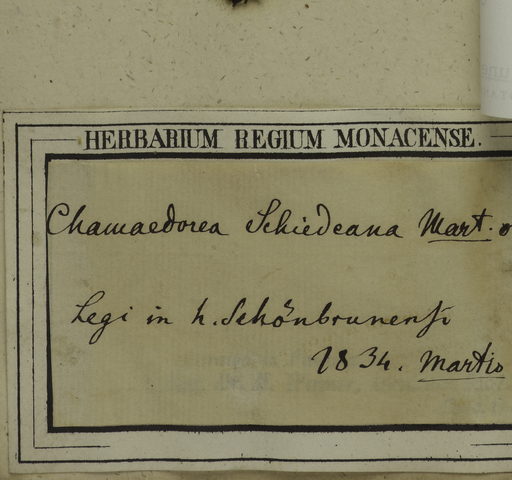 HERBARIUM REGIUM MONACENSE.
Chamaedorea Schiedeana Mart.
Legi in h. Schönbrunensi
1834. Martio